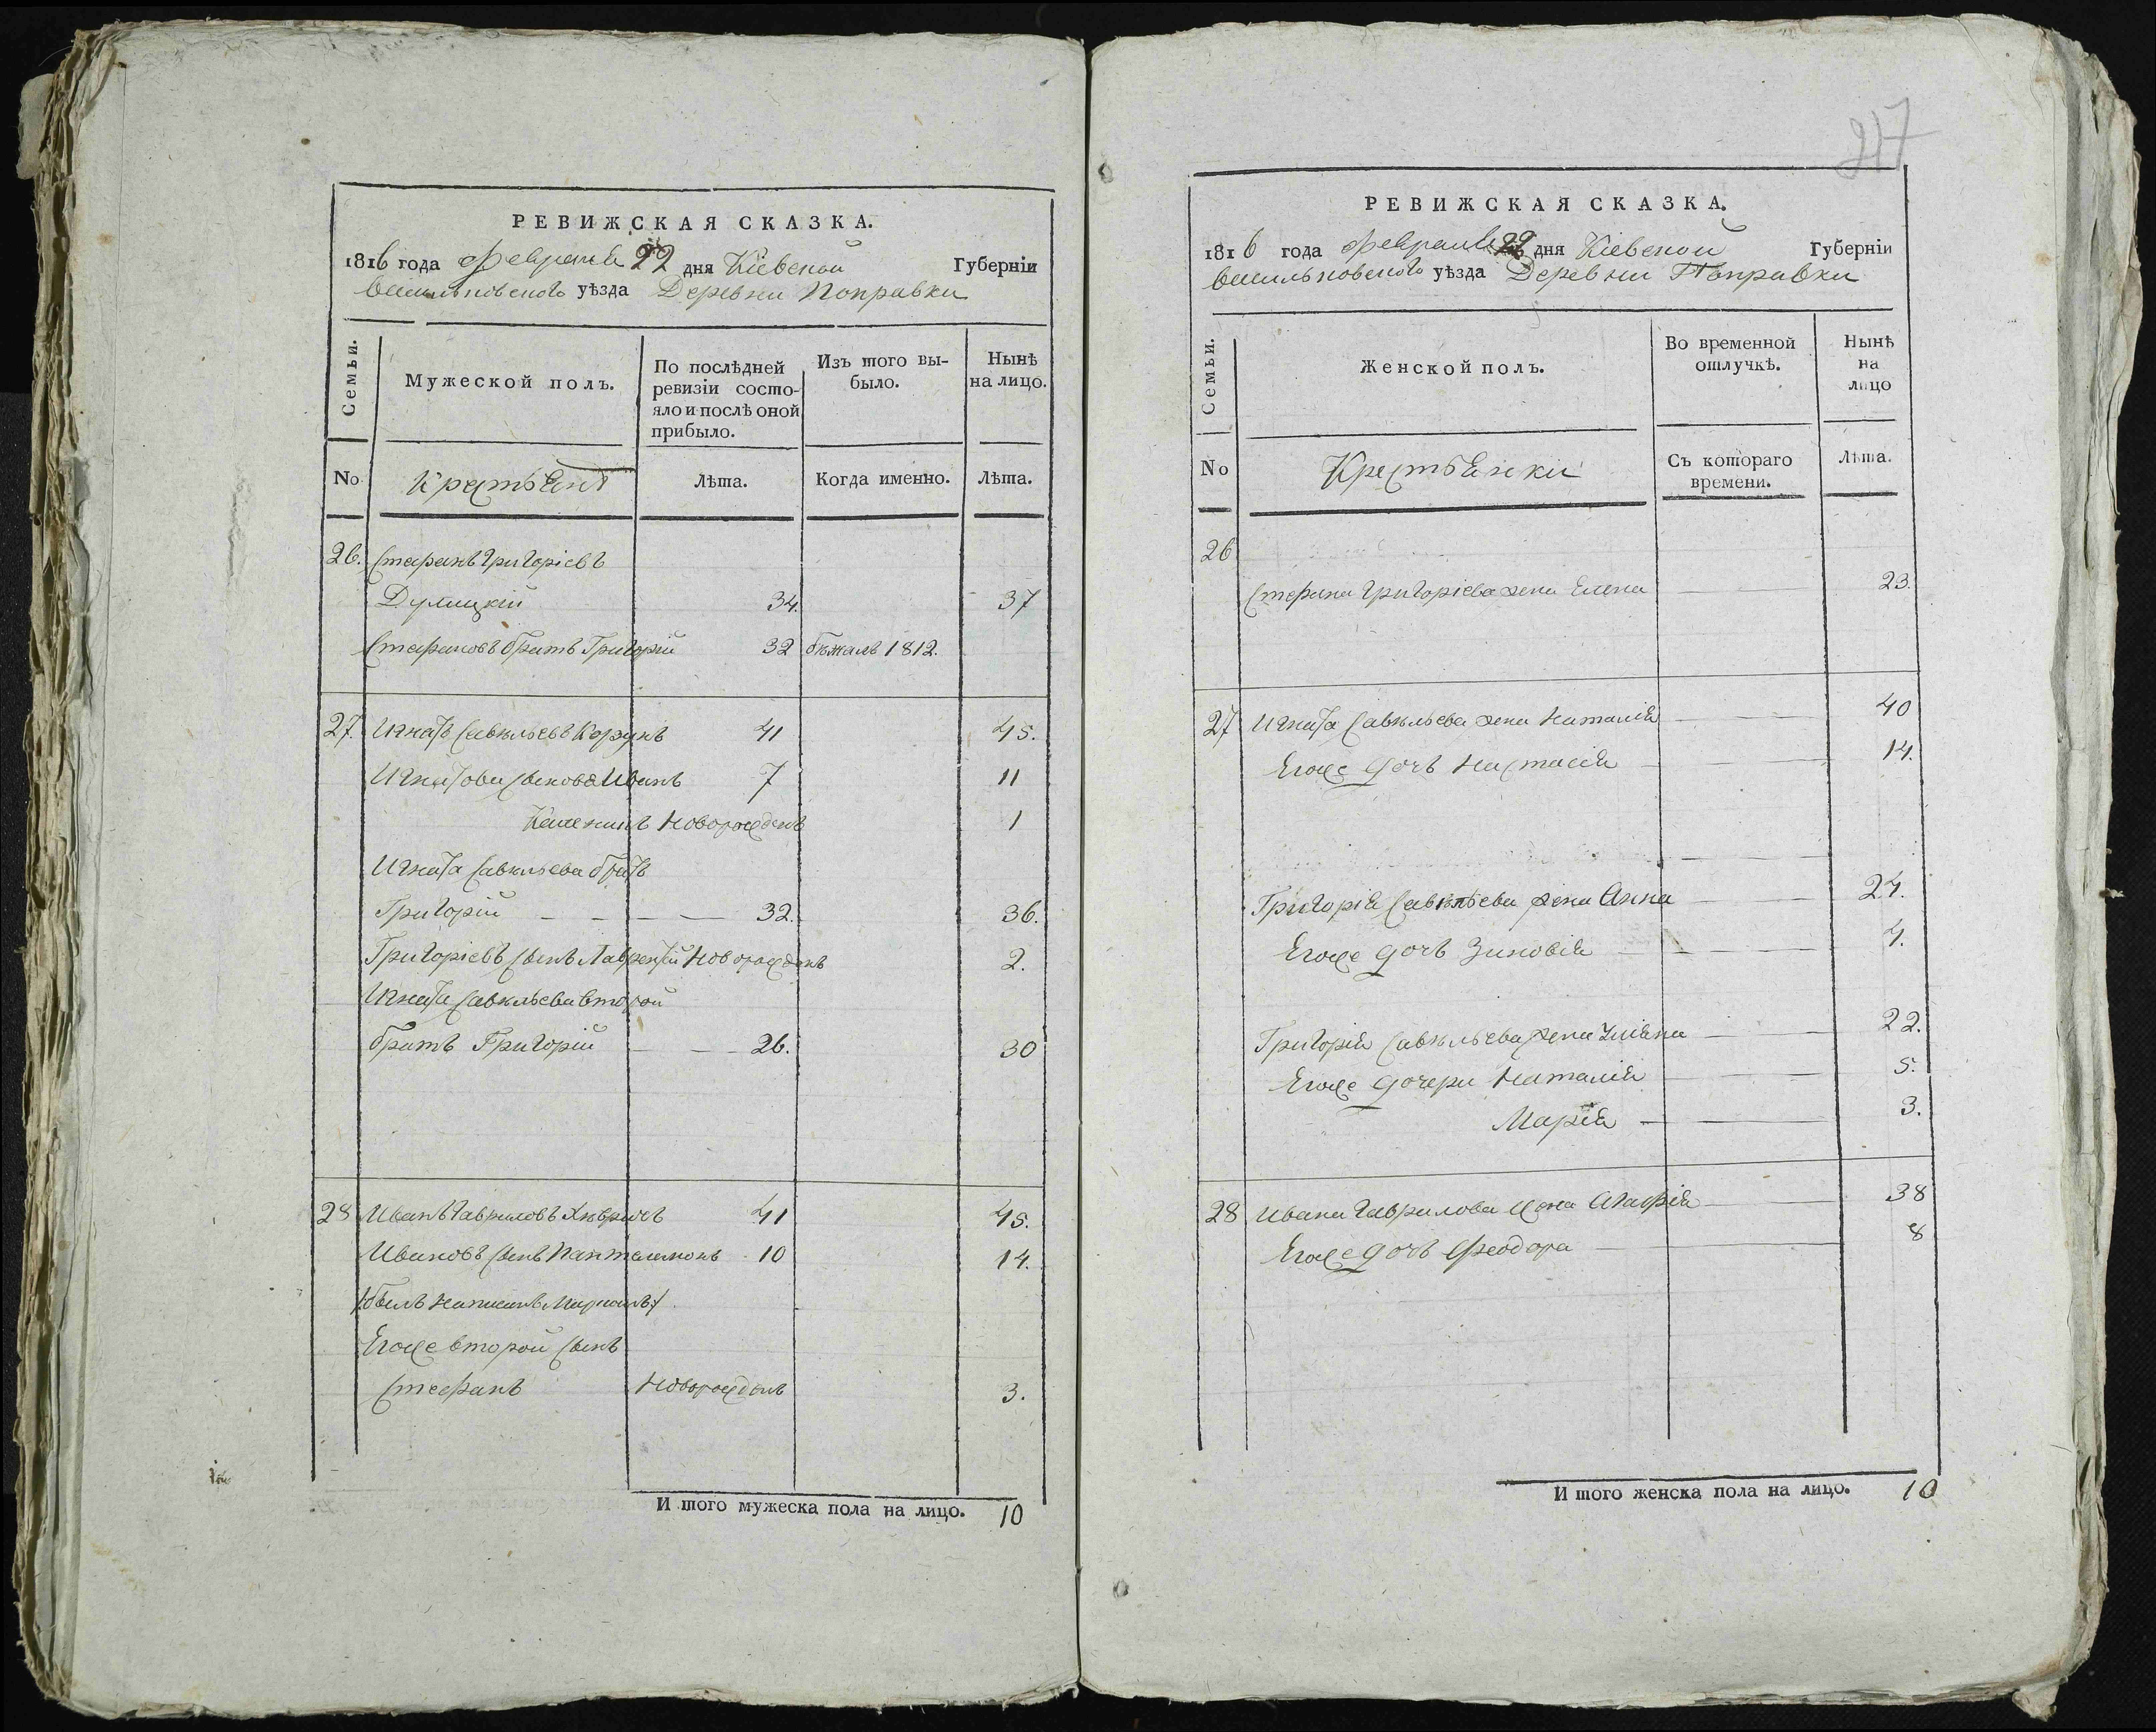 РЕВИЖСКАЯ СКАЗКА.
1816 года Февраля 22 дня Кіевской Губерніи
Васильковского уѣзда Деревни Поправки
Семьи.
Мужеской полъ.
По послѣдней ревизіи состояло и послѣ оной прибыло.
Изъ того выбыло.
Нынѣ на лицо.
No
Крестьянъ
Лѣта.
Когда именно.
Лѣта.
26. Стефанъ Григоріевъ
Дулицкій 34. 37
Стефановъ братъ Григорій 32 бѣжалъ 1812.
27. Игнатъ Савѣльевъ Корзунъ 41 45.
Игнатови сынове Иванъ 7 11
Каленикъ новорожденъ 1
Игната Савѣльева братъ
Григорій 32. 36.
Григоріевъ сынъ Лаврентій новорожденъ 2.
Игната Савѣльева второй
братъ Григорій 26. 30
28 Иванъ Гавриловъ 41 45.
Ивановъ сынъ Панталемонъ 10 14.
/былъ написанъ /
Егоже второй сынъ
Стефанъ новорожденъ 3.
И того мужеска пола на лицо. 10
217
РЕВИЖСКАЯ СКАЗКА.
1816 года Февраля 22 дня Кіевской Губерніи
Васильковского уѣзда Деревни Поправки
Семьи.
Женской полъ.
Во временной отлучкѣ.
Нынѣ на лицо
No
Крестьянки
Съ котораго времени.
Лѣта.
26
Стефана Григоріева жена Елена 23.
27 Игната Савѣльева жена Наталія 40
Егоже дочь Настасія 14.
Григорія Савѣльева жена Анна 24.
Егоже дочь Зиновія 4.
Григорія Савѣльева жена Уліяна 22.
Егоже дочери Наталія 5.
Марія 3.
28 Ивана Гаврилова жена Агафія 38
Егоже дочь Феодора 8
И того женска пола на лицо. 10